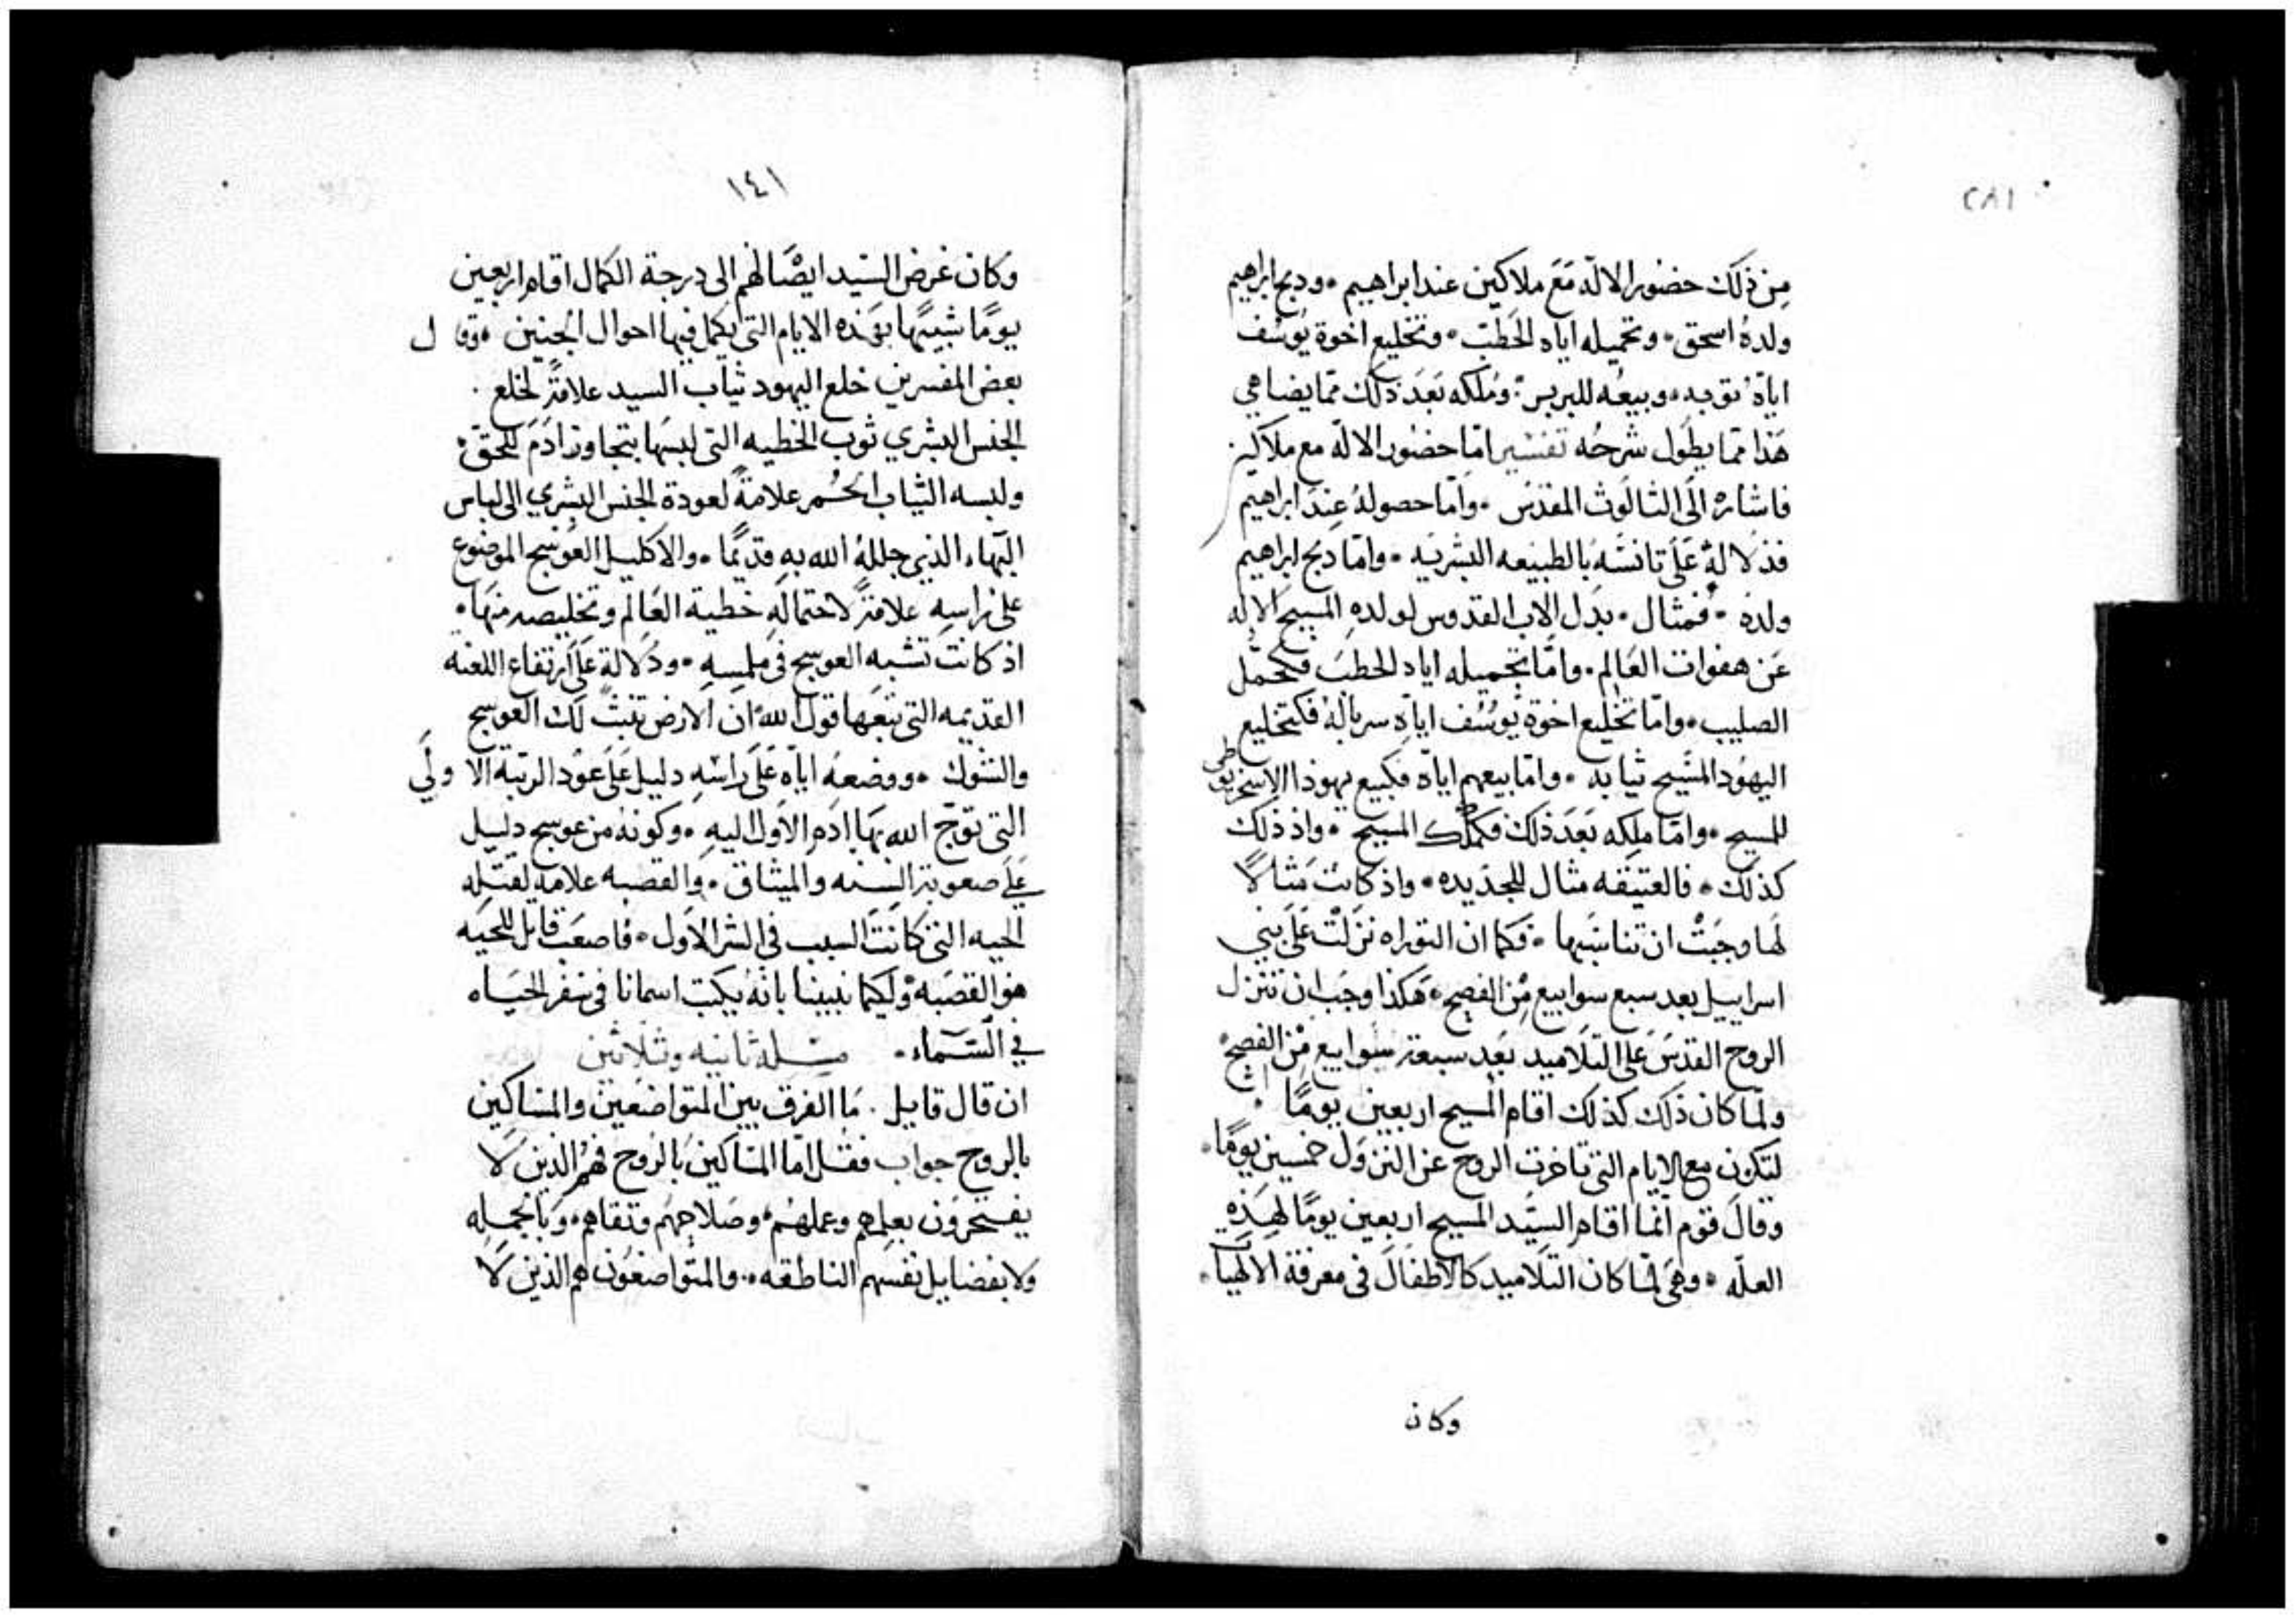 ٢٨١
من ذلك حضور الاله مع ملاكين عند ابراهيم ٠ ودبح ابراهيم
ولده اسحق ٠ وتحميله اياه الحطب ٠ وتخليع اخوة يوسف
اياه ثوبه ٠ وبيعه للبربر ٠ وملكه بعد ذلك مما يضاهي
هذا مما يطول شرحه تفسير اما حضور الاله مع ملاكين
فاشاره الى الثالوث المقدس ٠ واما حصوله عند ابراهيم
فدلالة على تانسه بالطبيعه البشريه ٠ واما دبح ابراهيم
ولده ٠ فمثال ٠ بدل الاب القدوس لولده المسيح الاله
عن هفوات العالم ٠ واما تحميله اياه الحطب فكحمل
الصليب ٠ واما تخليع اخوة يوسف اياه سرباله فكتخليع
اليهود المسيح ثيابه ٠ واما بيعهم اياه فكبيع يهوذا الاسخريوطي
للمسيح ٠ واما ملكه بعد ذلك فكملك المسيح ٠ واذ ذلك
كذلك ٠ فالعتيقه مثال للجديده ٠ واذ كانت مثالًا
لها وجبت ان تناسبها ٠ فكما ان التوراه نزلت على بني
اسراييل بعد سبع سوابيع من الفصح ٠ هكذا وجب ان تنزل
الروح القدس على التلاميد بعد سبعة سوابيع من الفصح
ولما كان ذلك كذلك اقام المسيح اربعين يومًا
لتكون مع الايام التي تاخرت الروح عن النزول خمسين يومًا ٠
وقال قوم انما اقام السيد المسيح اربعين يومًا لهذه
العله ٠ وهي لما كان التلاميد كالاطفال في معرفة الالهيات ٠
وكان
١٤١
وكان غرض السيد ايصالهم الى درجة الكمال اقام اربعين
يومًا شبيهًا بهذه الايام التي يكمل فيها احوال الجنين ٠ وقال
بعض المفسرين خلع اليهود ثياب السيد علامةً لخلع ٠
الجنس البشري ثوب الخطيه التي لبسها بتجاوز ادم للحق ٠
ولبسه الثياب الحمر علامةً لعودة الجنس البشري الى لباس
البهاء الذي جلله الله به قديمًا ٠ والاكليل العوسج الموضوع
على راسه علامةً لاحتماله خطية العالم وتخليصه منها ٠
اذ كانت تشبه العوسج في ملمسه ٠ ودلالة على ارتفاع اللعنه
القديمه التي تبعها قول الله ان الارض تنبت لك العوسج
والشوك ٠ ووضعه اياه على راسه دليل على عود الرتبة الاولي
التي توج الله بها ادم الاول اليه ٠ وكونه من عوسج دليل
على صعوبة السنه والميثاق ٠ والقصبه علامه لقتله
الحيه التي كانت السبب في الشر الاول ٠ فاصعب قاتل للحيه
هو القصبه ولكيما نبينا بانه يكتب اسمانا في سفر الحياه
في السماء ٠ مسله ثانيه وثلاثين
ان قال قايل ٠ ما الفرق بين المتواضعين والمساكين
بالروح جواب فقل اما المساكين بالروح فهم الذين لا
يفتخرون بعلمهم وعملهم ٠ وصلاحهم وتقاهم ٠ وبالجمله
ولا بفضايل نفسهم الناطقه ٠ والمتواضعون هم الذين لا